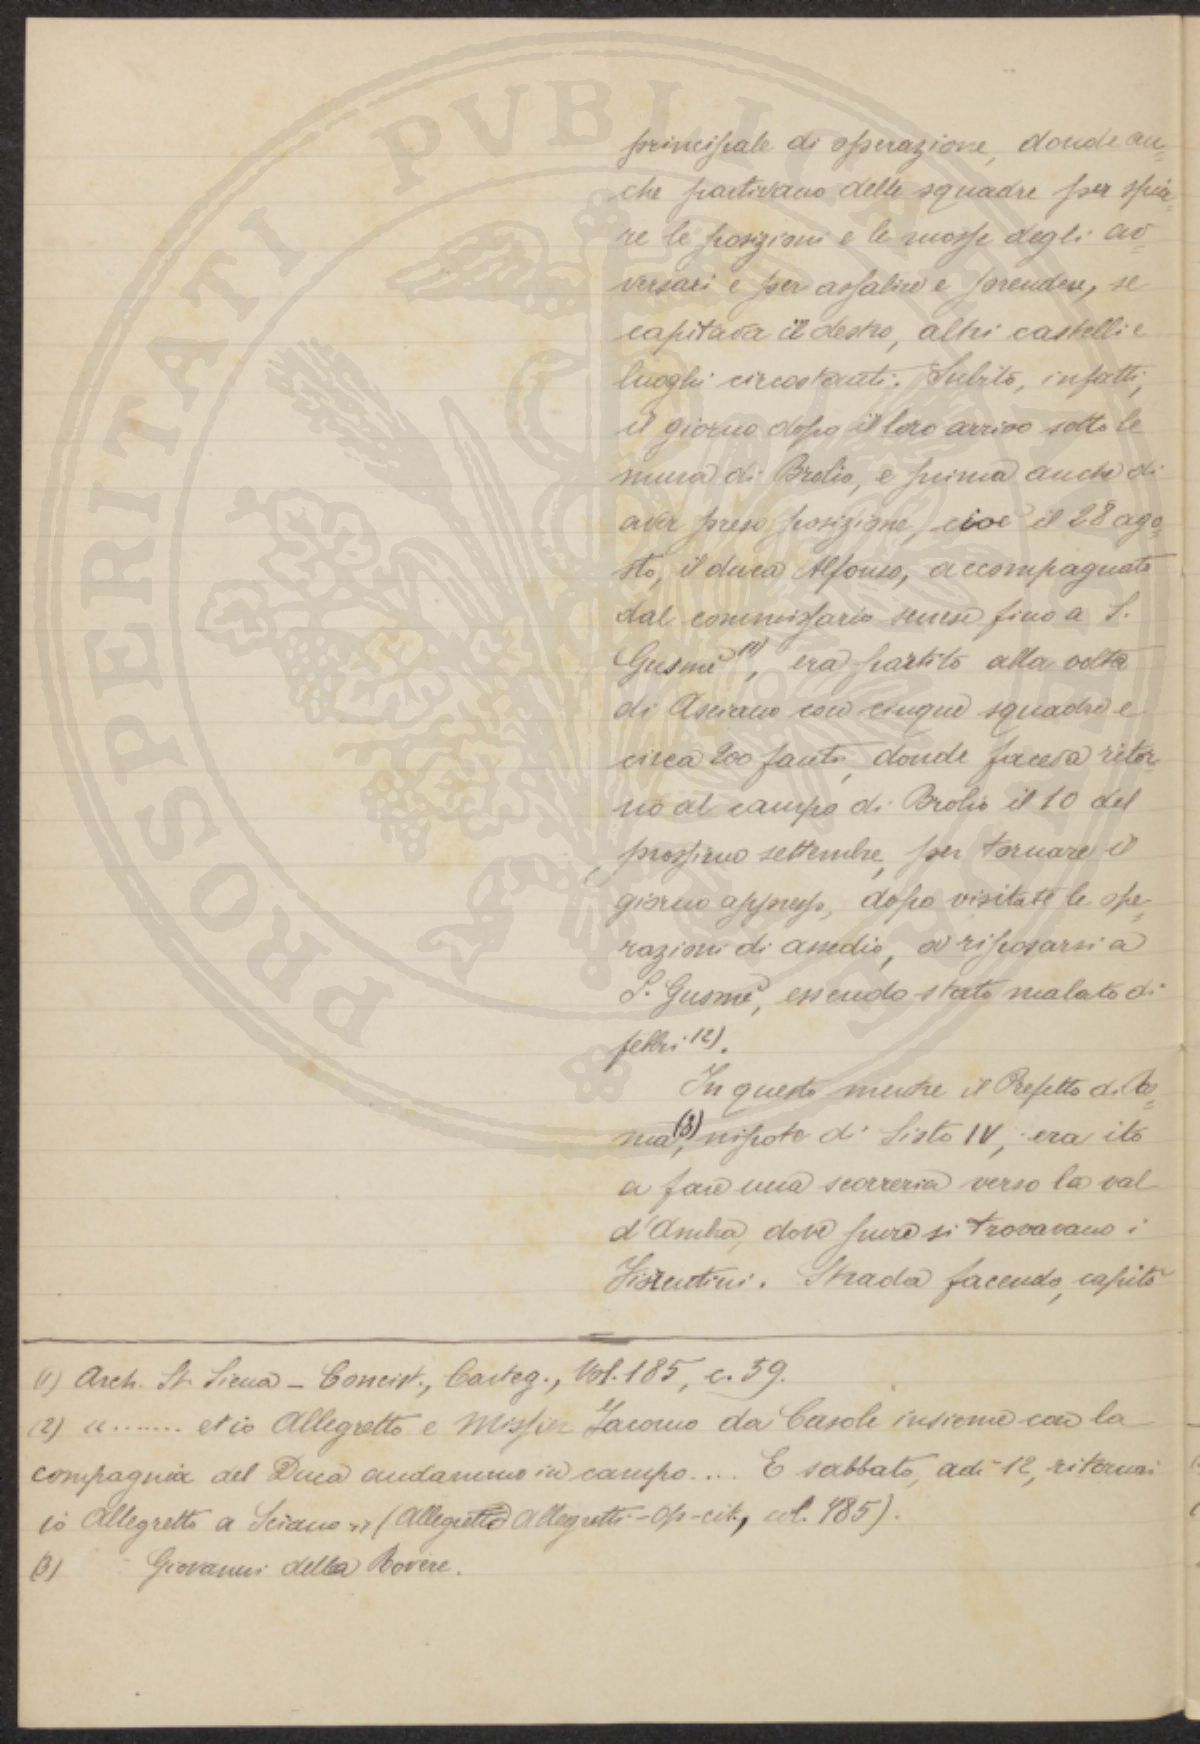 principale di operazione, donde an=
che partivano delle squadre per spia=
re le posizioni e le mosse degli av=
versari e per assalire e prendere, se
capitava il destro, altri castelli e
luoghi circostanti. Subito, infatti,
il giorno dopo il loro arrivo sotto le
mura di Brolio, e prima anche di
aver preso posizione, cioè il 28 ago=
sto, il duca Alfonso, accompagnato
dal commissario senese fino a S.
Gusmè (1), era partito alla volta
di Asciano con cinque squadre e
circa 200 fanti, donde faceva ritor=
no al campo di Brolio il 10 del
prossimo settembre, per tornare il
giorno appresso, dopo visitate le ope=
razioni di assedio, a riposarsi a
S. Gusmè, essendo stato malato di
febbri (2).
In questo mentre il Prefetto di Ro=
ma (3), nipote di Sisto IV, era ito
a fare una scorreria verso la val
d'Ambra, dove pure si trovavano i
Fiorentini. Strada facendo, capitò
(1) Arch. St. Siena - Concist., Carteg., Vol. 185, c. 59.
(2) «....... et io Allegretto e Missier Jacomo da Casole insieme con la
compagnia del Duca andammo in campo.... E sabbato, adì 12, ritornai
io Allegretto a Sciano» (Allegretto Allegretti - Op-cit., col. 785).
(3) Giovanni della Rovere.
PROSPERITATI PVBLICAE